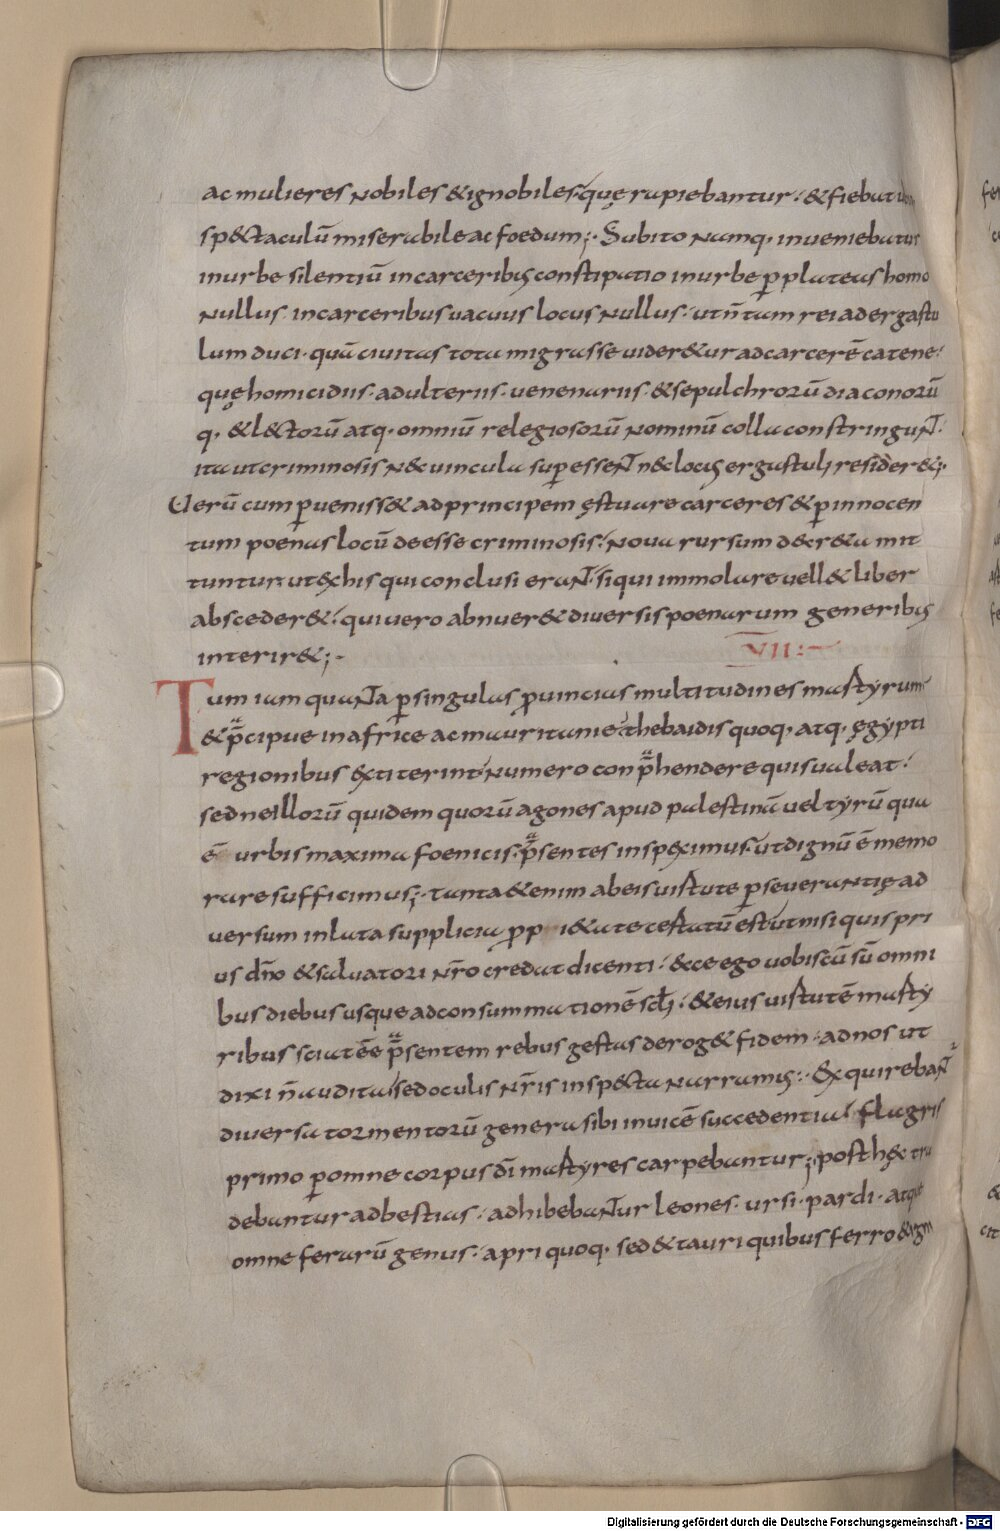 ac mulieres nobiles & ignobiles quę rapiebantur. & fiebat ubiq
sp&taculū miserabile ac foedum;. Subito namq. inueniebatur
in urbe silentiū in carceribus constipatio in urbe p̱ plateas homo
nullus in carceribus uacuus locus nullus. ut ñ tam rei ad ergastu
lum duci. quā ciuitas tota migrasse uider&ur ad carcerē catene.
quę homicidiis. adulteriis. uenenariis. & sepulchrorū diaconorū
q. & l&torū atq. omniū relegiosorū nominū colla constringunt.
ita ut criminosis nec uincula sup̱ essent nec locus ergastuli resider&;.
Uerū cum p̱ueniss& ad principem ęstuare carceres & p̱ innocen
tum poenas locū deesse criminosis. noua rursum decr&a mit
tuntur. ut ex his qui conclusi erant. siqui immolare uell& liber
absceder&. qui uero abnuer& diuersis poenarum generibus
interir&;.
VII:
Tum iam quanta p̱ singulas prouincias multitudines martyrum
& p̄cipue in africe ac mauritanie. thebaidis quoq. atq. ęgypti
regionibus extiterint numero conp̄hendere quis ualeat.
sed ne illorū quidem quorū agones apud palestinā uel tyrū qua
ē urbis maxima foenicis. p̄sentes inspeximus. ut dignū ē memo
rare sufficimus;. tanta &enim ab eis uirtute p̱seuerantię ad
uersum inlata supplicia pro pi&ate certatū est ut nisi quis pri
us dn̄o & saluatori nr̄o credat dicenti. ecce ego uobiscū sū omni
bus diebus usque ad consummationē scl̄i. & eius uirtutē marty
ribus sciat ēe p̄sentem rebus gestas derog& fidem. ad nos ut
dixi ñ audita sed oculis nr̄is inspecta narramus:. Exquireban̄t
diuersa tormentorū genera sibi inuicē succedentia. flagris
primo p̱ omne corpus dī martyres carpebantur; post hęc tra
debantur ad bestias. adhibebantur leones. ursi. pardi. atque
omne ferarū genus. apri quoq. sed & tauri quibus ferro & igni
Digitalisierung gefördert durch die Deutsche Forschungsgemeinschaft - DFG